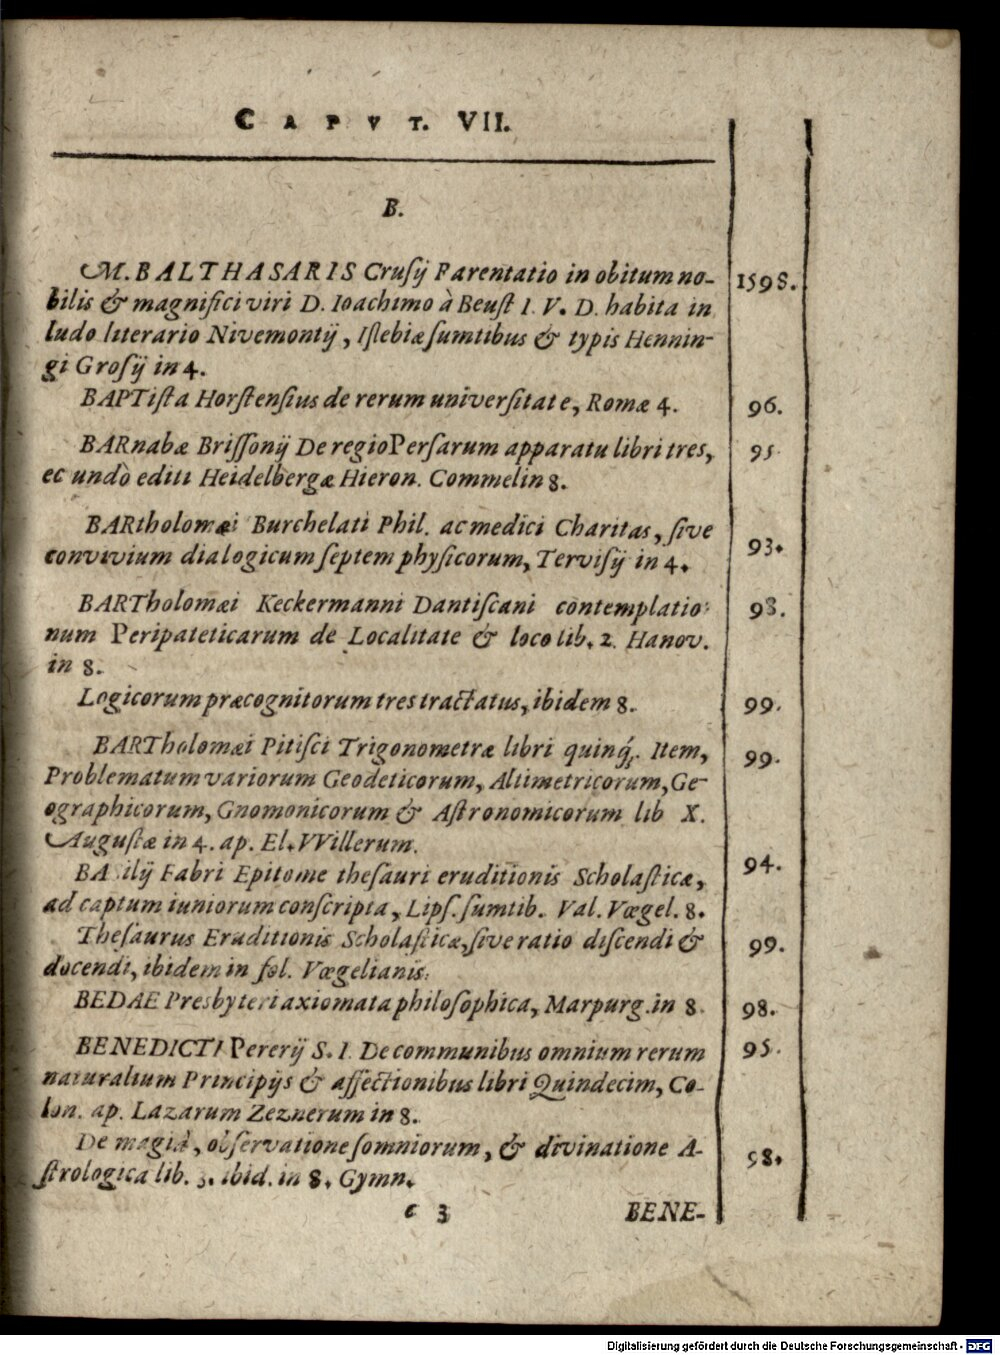 CAPVT. VII.
B.
M. BALTHASARIS Cruſij Parentatio in obitum no- 1598.
bilis & magnifici viri D. Ioachimo à Beuſt I. V. D. habita in
ludo literario Nivemontij, Iſlebiæ ſumtibus & typis Hennin-
gi Groſij in 4.
BAPTiſta Horſtenſius de rerum univerſitate, Romæ 4. 96.
BARnabæ Briſſonij De regio Perſarum apparatu libri tres, 95
ec undò editi Heidelbergæ Hieron. Commelin 8.
BARtholomæi Burchelati Phil. ac medici Charitas, ſive
convivium dialogicum ſeptem phyſicorum, Terviſij in 4. 93.
BARTholomæi Keckermanni Dantiſcani contemplatio- 98.
num Peripateticarum de Localitate & loco lib. 2. Hanov.
in 8.
Logicorum præcognitorum tres tractatus, ibidem 8. 99.
BARTholomæi Pitiſci Trigonometræ libri quinq́;. Item, 99.
Problematum variorum Geodeticorum, Altimetricorum, Ge-
ographicorum, Gnomonicorum & Aſtronomicorum lib X.
Auguſtæ in 4. ap. El. VVillerum.
BA ilij Fabri Epitome theſauri eruditionis Scholaſticæ, 94.
ad captum iuniorum conſcripta, Lipſ. ſumtib. Val. Vœgel. 8.
Theſaurus Eruditionis Scholaſticæ, ſive ratio diſcendi & 99.
docendi, ibidem in fol. Vœgelianis.
BEDAE Presbyteri axiomata philoſophica, Marpurg. in 8. 98.
BENEDICTI Pererij S. I. De communibus omnium rerum 95.
naturalium Principijs & affectionibus libri Quindecim, Co-
lon. ap. Lazarum Zeznerum in 8.
De magiâ, obſervatione ſomniorum, & divinatione A- 98.
ſtrologica lib. 3. ibid. in 8. Gymn.
c 3 BENE-
Digitalisierung gefördert durch die Deutsche Forschungsgemeinschaft - DFG